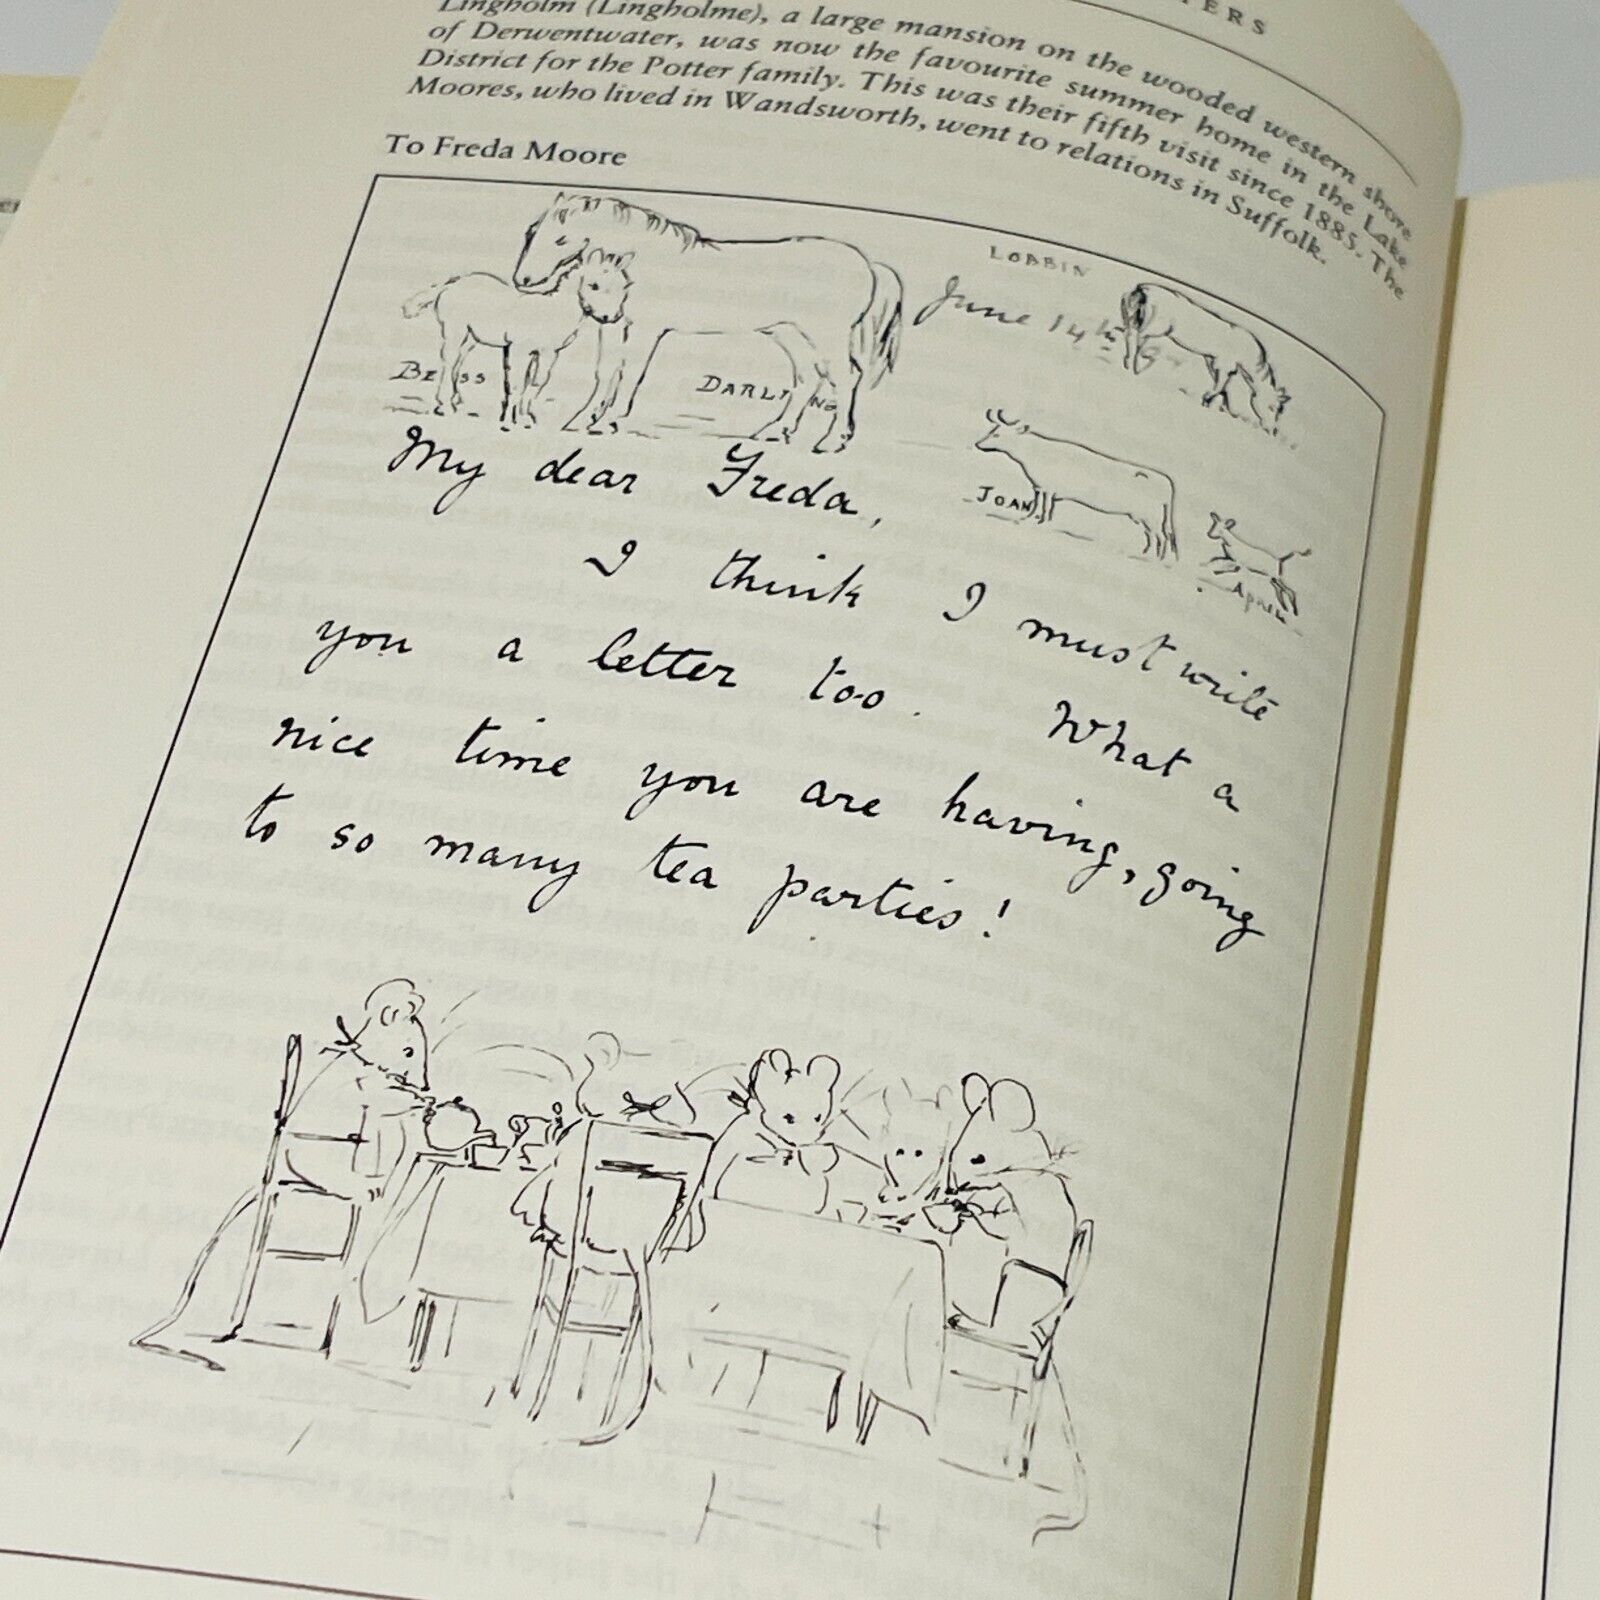 TERS
Lingholm (Lingholme), a large mansion on the wooded western shore
of Derwentwater, was now the favourite summer home in the Lake
District for the Potter family. This was their fifth visit since 1885. The
Moores, who lived in Wandsworth, went to relations in Suffolk.
To Freda Moore
LOBBIN
June 14th
BESS
DARLING
My dear Freda,
JOAN
I think I must write
you a letter too. What a
nice time you are having, going
to so many tea parties!